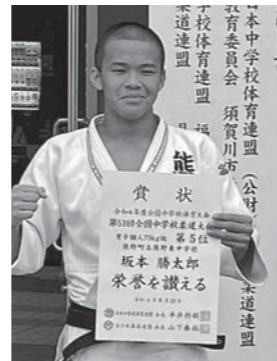 日本中学校体育連盟 (公財
学校体育連盟 福
教育委員会 須賀川市
柔道連盟
柔道連盟
熊
賞状
令和4年度全国中学校体育大会
第53回全国中学校柔道大会
男子個人73kg級 第5位
熊野町立熊野東中学校
坂本 勝太郎
栄誉を讃える